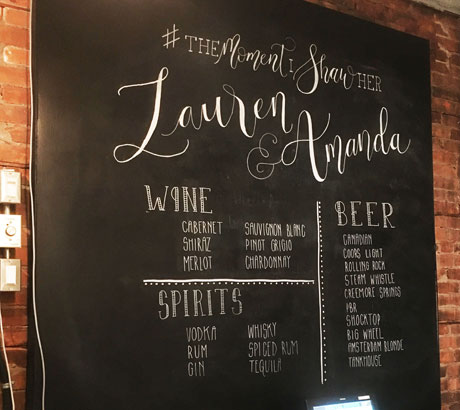 #THE MOMENT I SHAW HER
Lauren
& Amanda
WINE
CABERNET SAUVIGNON BLANC
SHIRAZ PINOT GRIGIO
MERLOT CHARDONNAY
SPIRITS
VODKA WHISKY
RUM SPICED RUM
GIN TEQUILA
BEER
CANADIAN
COORS LIGHT
ROLLING ROCK
STEAM WHISTLE
CREEMORE SPRINGS
PBR
SHOCKTOP
BIG WHEEL
AMSTERDAM BLONDE
TANKHOUSE